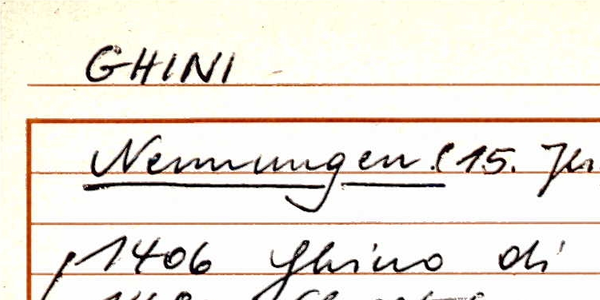 GHINI
Nennungen (15. Jh.
1406 Ghino di